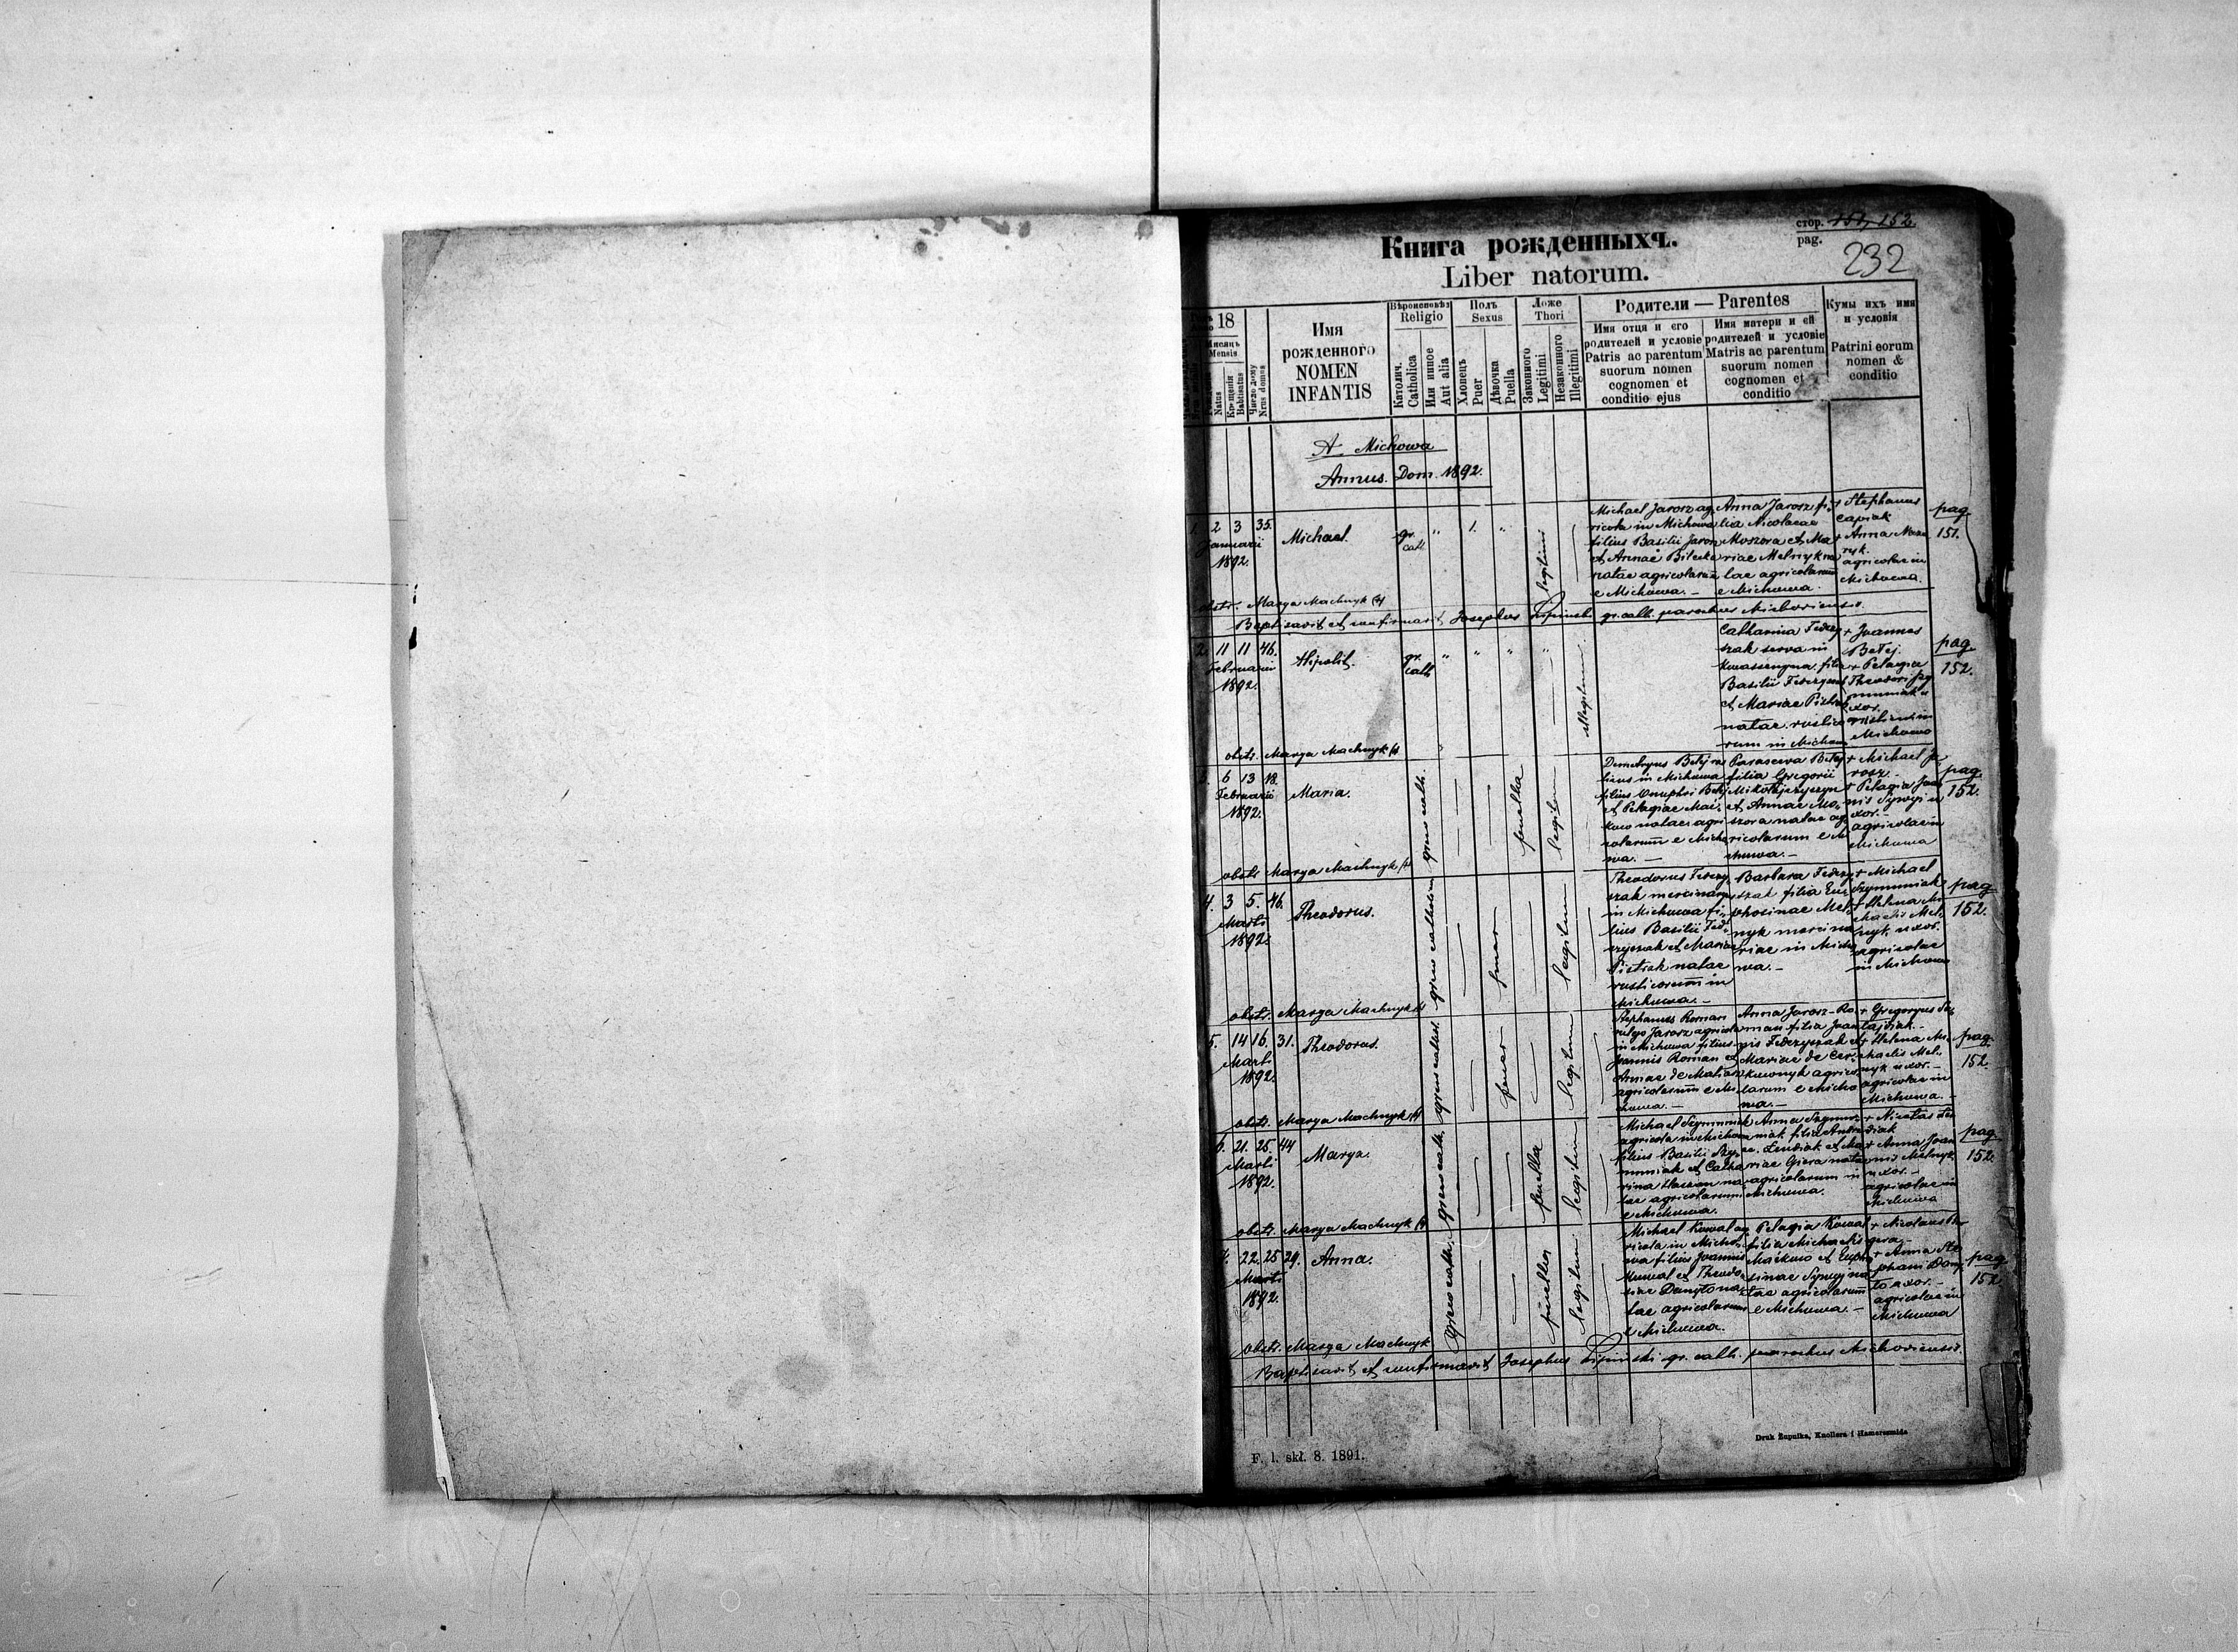 стор. 151, 152.
pag.
232
Книга рожденныхъ.
Liber natorum.
18
Мѣсяць
Mensis
Natus
Крещенія
Babtisatus
Число дому
Nrus domus
Имя
рожденного
NOMEN
INFANTIS
Вѣроисповѣд
Religio
Католич.
Catholica
Или инное
Aut alia
Полъ
Sexus
Хлопець
Puer
Дѣвочка
Puella
Ложе
Thori
Законного
Legitimi
Незаконного
Illegitimi
Родители — Parentes
Имя отця и єго
родителей и условіе
Patris ac parentum
suorum nomen
cognomen et
conditio ejus
Имя матери и ей
родителей и условіе
Matris ac parentum
suorum nomen
cognomen et
conditio
Кумы ихъ имя
и условія
Patrini eorum
nomen &
conditio
A. Michowa
Annus. Dom. 1892.
1. 2 3 35.
Januarii
1892.
Michael.
gr.
cath
" 1. "
legitimi
Michael Jarosz ag
ricola in Michowa
filius Basilii Jarosz
et Annae Bilecka
natae agricolarum
e Michowa. –
Anna Jarosz fi
lia Nicolaae
Moszora et Ma
riae Melnyk na
tae agricolarum
e Michowa
+ Stephanus
Capiak
+ Anna
ryk.
agricolae in
Michowa.
pag
151.
obstr. Marya Machnyk
Baptisavit et confirmavit Josephus Lipinski gr. cath. parochus Michoviensis.
2. 11 11 46.
Februarii
1892.
Hipolit.
gr.
cath
" " " "
illegitimi
Catharina Fedczy
szak serva in
filia
Basilii Fedczyszak
et Mariae Pistrak
natae rustico
rum in Michowa
+ Joannes
Betej.
+ Pelagia
Theodori Szy
mmniak u
xor.
in
Michowa
pag
152.
obstr. Marya Machnyk
6 13 18.
Februarii
1892.
Maria.
graeco cath.
puella
legitimi
Demetryus Betej
in Michowa
filius Onuphri Betej
et Pelagiae Mać
kow natae agri
colarum e Micho
wa. –
Parascewa Betej
filia Gregorii
Mikołajczyszyn
et Annae Mo
szora natae ag
ricolarum e Mi
chowa. –
+ Michael Ja
rosz –
+ Pelagia Joan
nis Sywyj u
xor. –
agricolae in
Michowa
pag.
152.
obstr. Marya Machnyk
4. 3 5. 46.
Marti
1892.
Theodorus.
graeco catholicum
puer
legitimum
Theodorus Fedczy
szak
in Michowa fi
lius Basilii Fed
czyszak et Mariae
Pistrak natae
rusticorum in
Michowa. –
Barbara Fedczy
szak filia Eu
phosinae Mel
nyk
in Micho
wa. –
+ Michael
Szymmniak
+ Helena Mi
chaelis Mel
nyk. uxor.
agricolae
in Michowa
pag
152.
obstr. Marya Machnyk
5. 14 16. 31.
Marti
1892.
Theodorus.
graeco cathol.
puer
legitimum
Stephanus Roman
vulgo Jarosz agricola
in Michowa filius
Joannis Roman et
Annae de
agricolarum e Mi
chowa. –
Anna Jarosz – Ro
man filia Joan
nis Fedczyszak et
Mariae de
agrico
larum e Micho
wa. –
+ Gregoryus
+ Helena Mi
chaelis Mel
nyk uxor. –
agricolae in
Michowa. –
pag.
152.
obstr. Marya Machnyk
6. 21. 25. 44
Marti
1892.
Marya.
graeco cath.
puella
legitimum
Michael Szymmniak
agricola in Michowa
filius Basilii Szy
mmniak et Catha
rina na
tae agricolarum
e Michowa.
Anna Szymm
niak filia
et Ma
riae natae
agricolarum in
Michowa.
+ Nicolaus
+ Anna Joan
nis Melnyk.
uxor. –
agricolae in
Michowa
pag
152.
obstr. Marya Machnyk
7. 22. 25 29.
Marti
1892.
Anna.
graeco cath.
puella
legitimum
Michael Kowal ag
ricola in Micho
wa filius Joannis
Kowal et Theodo
siae Danyło na
tae agricolarum
e Michowa.
Pelagia Kowal
filia Michaelis
Maćkow et Euph
sinae Sywyj na
tae agricolarum
e Michowa. –
+ Nicolaus
+ Anna Ste
phani Dany
ło uxor. –
agricolae in
Michowa
pag
152
obstr. Marya Machnyk
Baptisavit et confirmavit Josephus Lipinski gr. cath. parochus Michoviensis.
F. l. skł. 8. 1891.
Druk Żupnika, Knollera i Hamerszmida